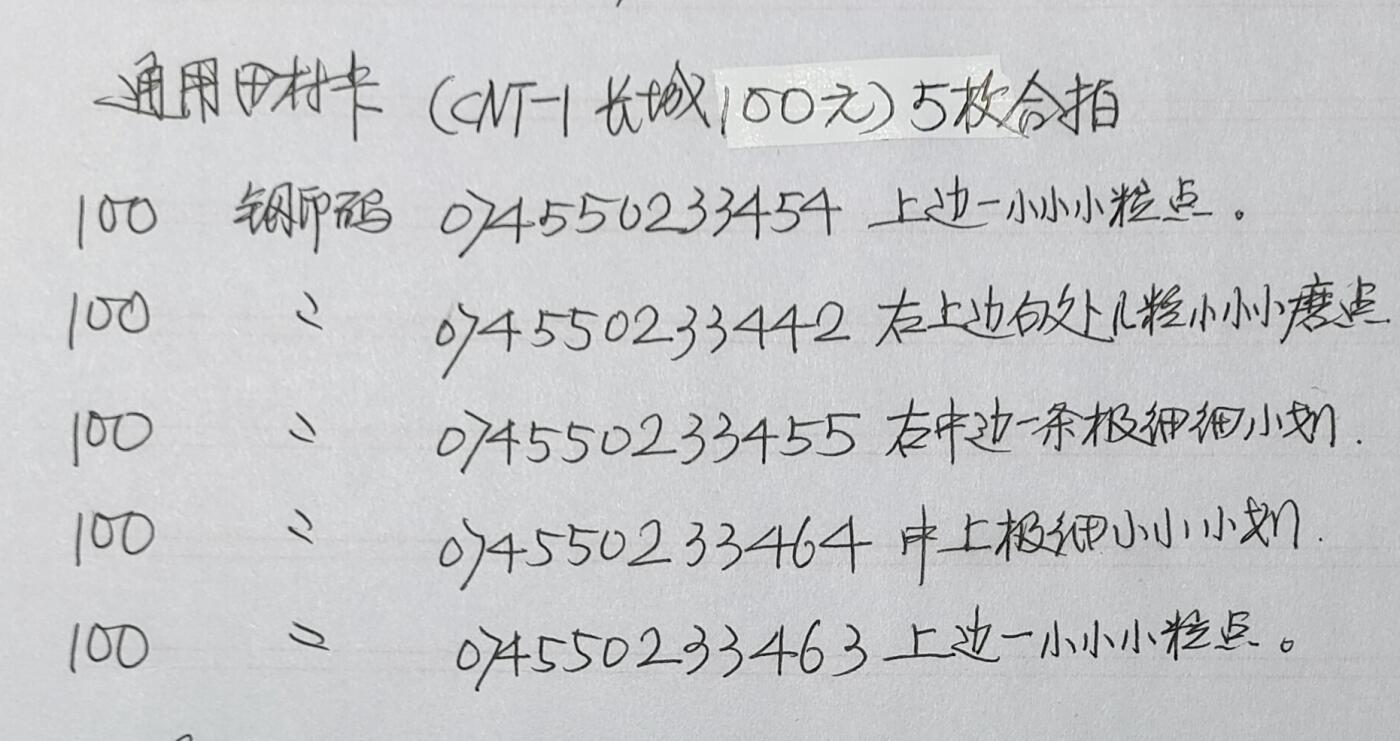 通用田村卡 (CNT-1 长城100元) 5枚合拍
100 钢印码 074550233454 上边一小小小粒点。
100 〃 074550233442 右上边白处几粒小小小磨点.
100 〃 074550233455 右中边一条极细细小划.
100 〃 074550233464 中上极细小小小划.
100 〃 074550233463 上边一小小小粒点。